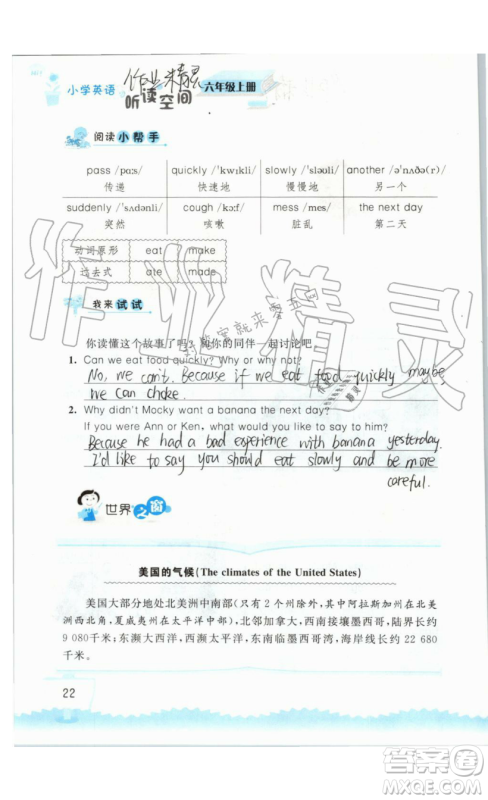 小学英语
作业精灵
听读空间
六年级上册
阅读小帮手
pass /pɑːs/ quickly /'kwɪkli/ slowly /'sləʊli/ another /ə'nʌðə(r)/
传递 快速地 慢慢地 另一个
suddenly /'sʌdənli/ cough /kɔːf/ mess /mes/ the next day
突然 咳嗽 脏乱 第二天
动词原形 eat make
过去式 ate made
我来试试
你读懂这个故事了吗？和你的同伴一起讨论吧。
1. Can we eat food quickly? Why or why not?
No, we can't. Because if we eat food quickly maybe
we can choke.
2. Why didn't Mocky want a banana the next day?
If you were Ann or Ken, what would you like to say to him?
Because he had a bad experience with banana yesterday.
I'd like to say you should eat slowly and be more
careful.
世界之窗
美国的气候(The climates of the United States)
美国大部分地处北美洲中南部(只有2个州例外，其中阿拉斯加州在北美
洲西北角、夏威夷州在太平洋中部)。北接加拿大，西南接壤墨西哥，陆界长约
9 080千米；东濒大西洋，西濒太平洋，东南临墨西哥湾，海岸线长约 22 680
千米。
22
作业精灵
答案圈